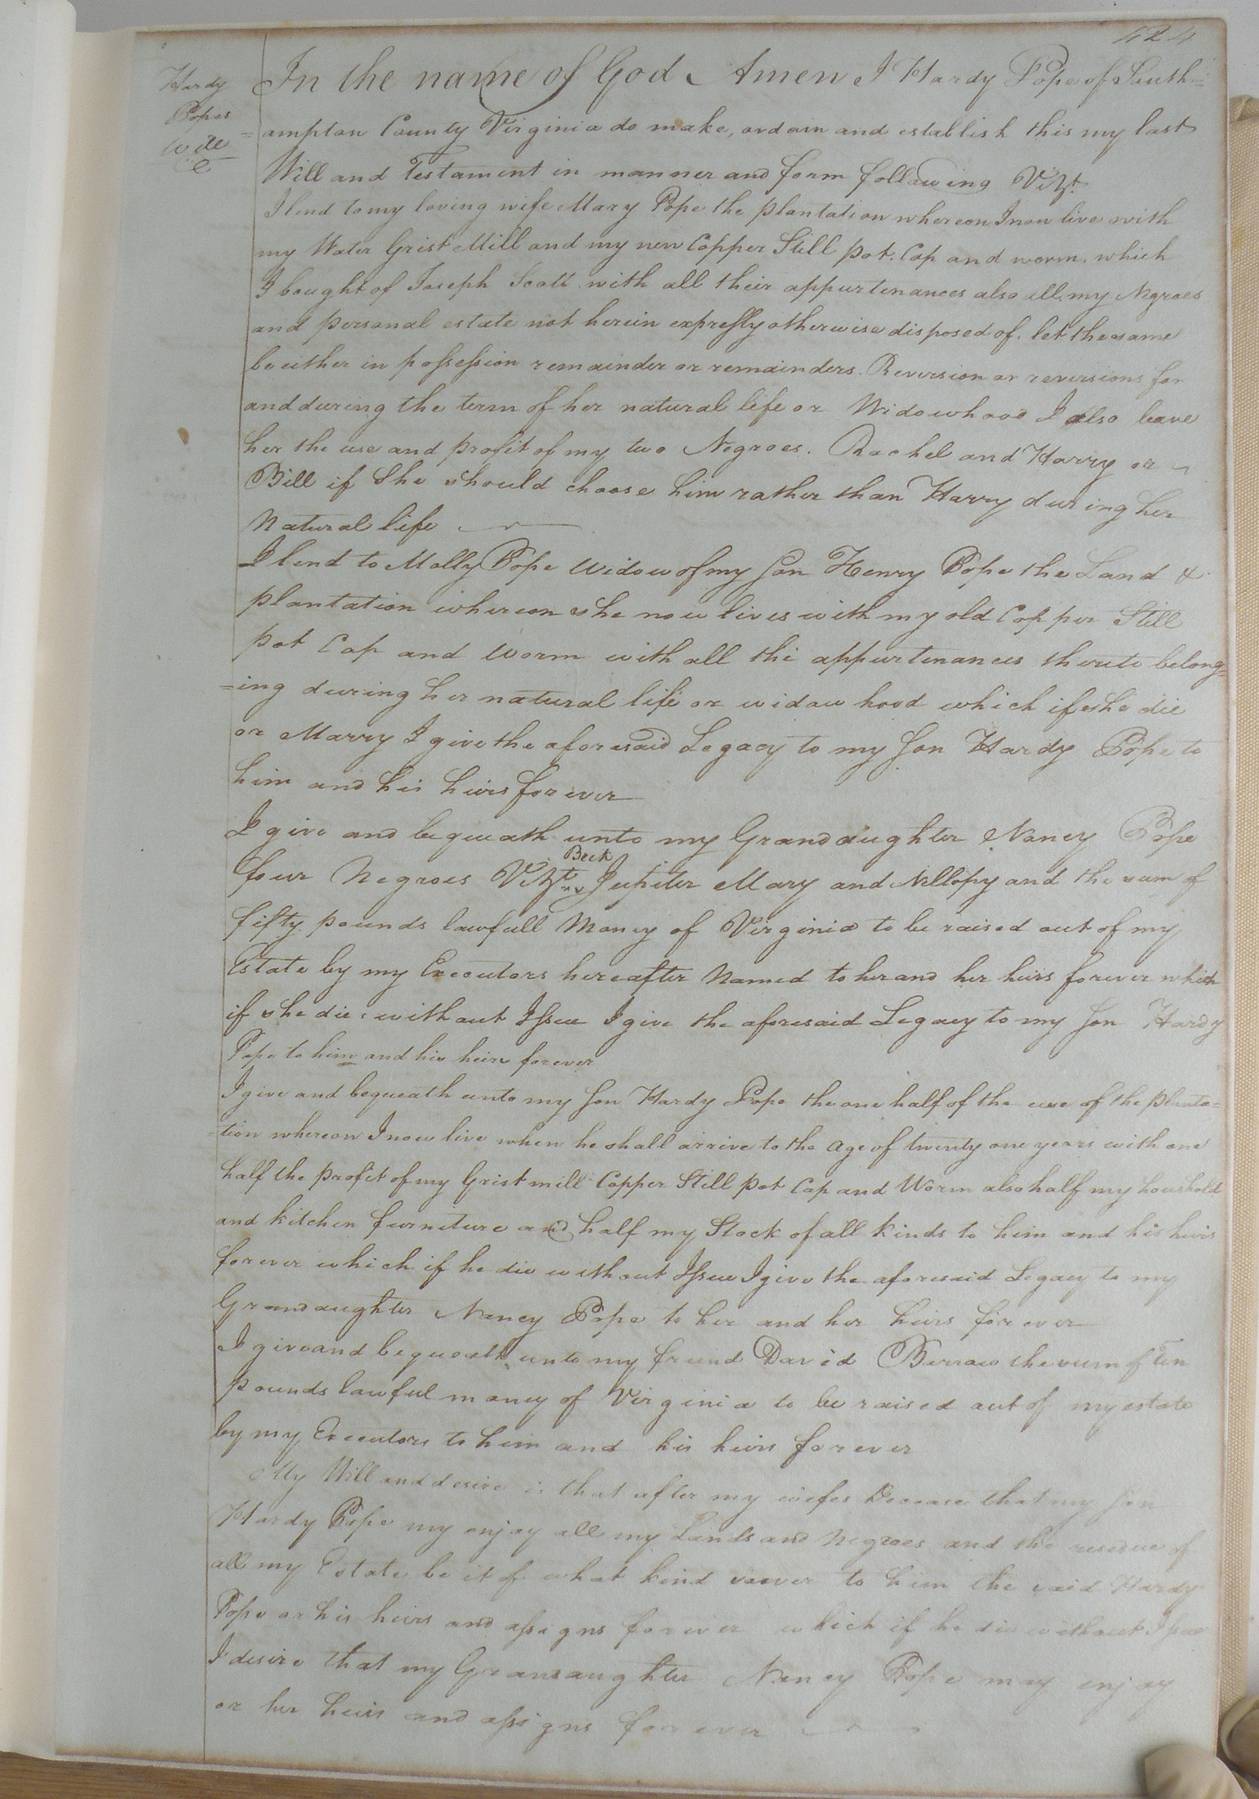 424
Hardy
Popes
Will
In the name of God Amen I Hardy Pope of South-
=ampton County Virginia do make, ordain and establish this my last
Will and Testament in manner and form following Vizt.
I lend to my loving wife Mary Pope the plantation whereon I now live with
my Water Grist Mill and my new Copper Still pot. Cap and worm. which
I bought of Joseph Scott with all their appurtenances also all my Negroes
and personal estate not herein expressly otherwise disposed of. let the same
be either in possession remainder or remainders. Reversion or reversions for
and during the term of her natural life or Widowhood I also leave
her the use and profit of my two Negroes. Rachel and Harry or
Bill if She should choose him rather than Harry during her
Natural life
I lend to Molly Pope Widow of my Son Henry Pope the Land &
plantation whereon she now lives with my old Copper Still
pot Cap and Worm with all the appurtenances thereto belong=
=ing during her natural life or widow hood which if she die
or Marry I give the aforesaid Legacy to my Son Hardy Pope to
him and his heirs forever
I give and bequeath unto my Grand daughter Nancy Pope
Beck
four Negroes Vizt. Jupiter Mary and Nellopy and the sum of
fifty pounds lawfull Money of Virginia to be raised out of my
Estate by my Executors hereafter Named to her and her heirs forever which
if she die without Issue I give the aforesaid Legacy to my Son Hardy
Pope to him and his heirs forever
I give and bequeath unto my Son Hardy Pope the one half of the use of the planta=
=tion whereon I now live when he shall arrive to the age of twenty one years with one
half the profit of my Grist mill Copper Still pot Cap and Worm also half my houshold
and kitchen furniture and half my Stock of all kinds to him and his heirs
forever which if he die without Issue I give the aforesaid Legacy to my
Grandaughter Nancy Pope to her and her heirs forever
I give and bequeath unto my friend David Barrow the sum of Ten
pounds lawful money of Virginia to be raised out of my estate
by my Executors to him and his heirs forever
My Will and desire is that after my wifes Decease that my Son
Hardy Pope my enjoy all my Lands and Negroes and the residue of
all my Estate be it of what kind soever to him the said Hardy
Pope or his heirs and assigns forever which if he die without Issue
I desire that my Grandaughter Nancy Pope may enjoy
or her heirs and assigns forever